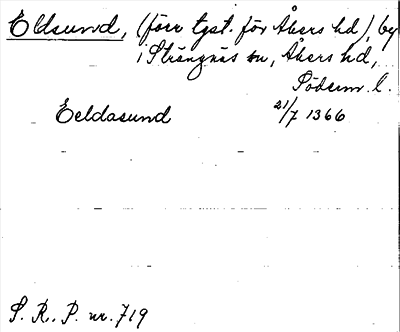 Eldsund, (förr tgst. för Åkers hd), by
i Strängnäs sn, Åkers hd,
Söderm. l.
Eeldasund 21/7 1366
S. R. P. nr. 719